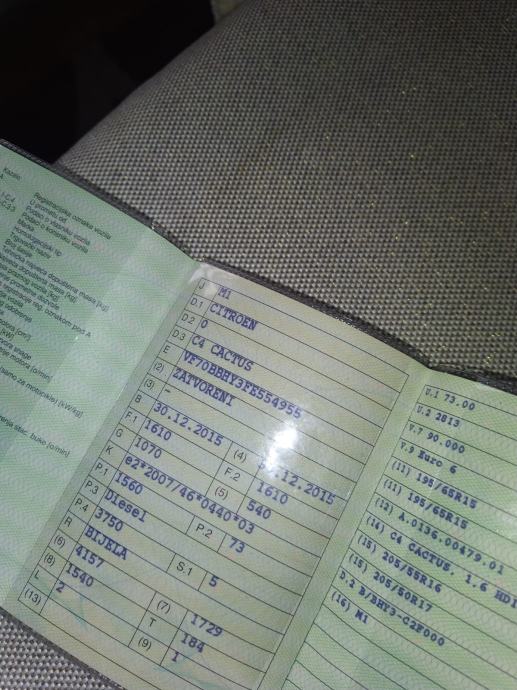 Registracijska oznaka vozila
U prometu od
Podaci o vlasniku vozila
Podaci o korisniku vozila
Marka
Homologacijski tip
Trgovački naziv
Broj šasije
J M1
D.1 CITROEN
D.2 0
D.3 C4 CACTUS
E VF70BBHY3FE554955
(2) ZATVORENI
(3) -
B 30.12.2015 (4) .12.2015
F.1 1610 F.2 1610
G 1070 (5) 540
K e2*2007/46*0440*03
P.1 1560 P.2 73
P.3 Diesel
P.4 3750
R BIJELA S.1 5
(6) 4157 (7) 1729
(8) 1540 T 184
L 2 (9) 1
(13)
U.1 73.00
U.2 2813
V.7 90.000
V.9 Euro 6
(11) 195/65R15
(11) 195/65R15
(12) A.0136.00479.01
(14) C4 CACTUS. 1.6 HDI
(15) 205/55R16
(15) 205/50R17
D.2 B/BHY3-C2F000
(16) M1